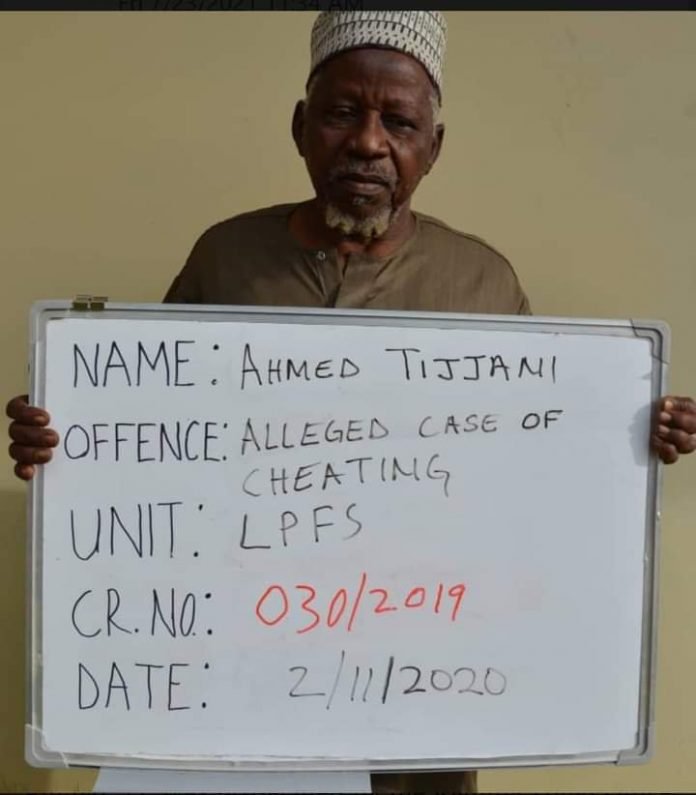 Fri 7/23/2021 11:34 AM
NAME: AHMED TIJJANI
OFFENCE: ALLEGED CASE OF
CHEATING
UNIT: LPFS
CR. NO.: 030/2019
DATE: 2/11/2020